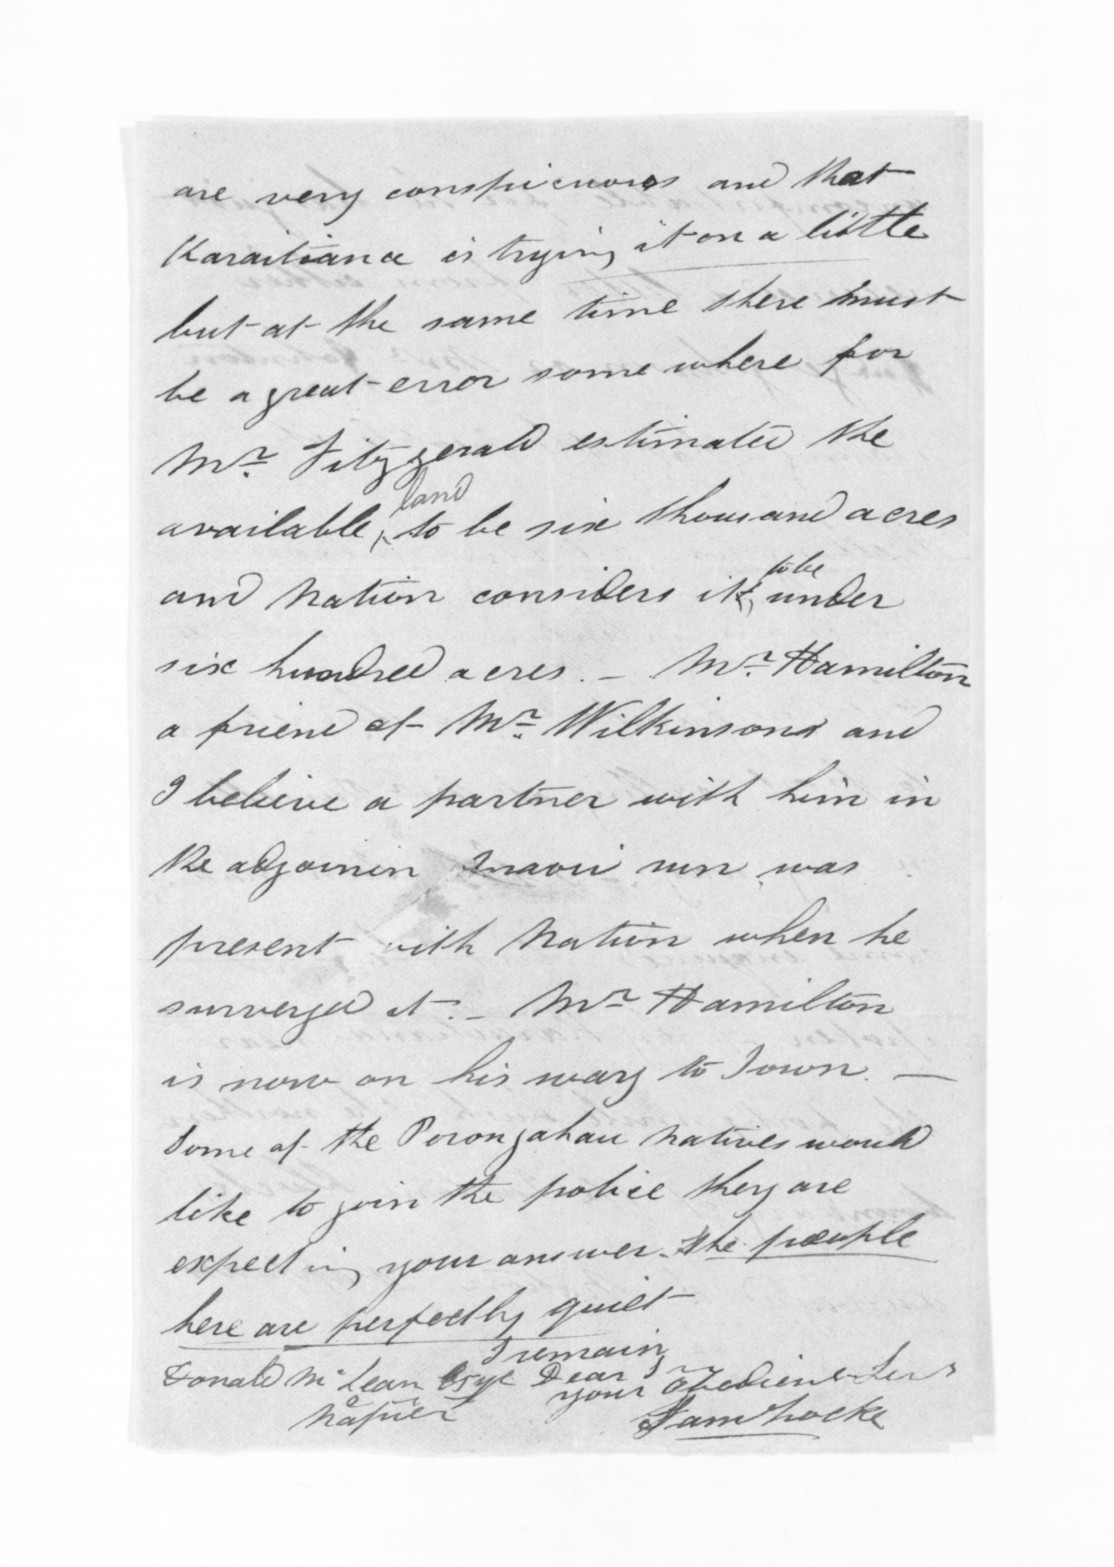 are very conspicuous and that
Karaitiana is trying it on a little
but at the same time there must
be a great error some where for
Mr. Fitzgerald estimated the
land
available to be six thousand acres
to be
and Nation considers it under
six hundred acres. — Mr. Hamilton
a friend of Mr. Wilkinsons and
I believe a partner with him in
the adjoinin maori run was
present with Nation when he
surveyed it. — Mr Hamilton
is now on his way to Town. —
Some of the Porongahau natives would
like to join the police they are
expecting your answer. The people
here are perfectly quiet
I remain
Donald McLean Esqr Dear
your obedient Ser
Napier
Sam Locke